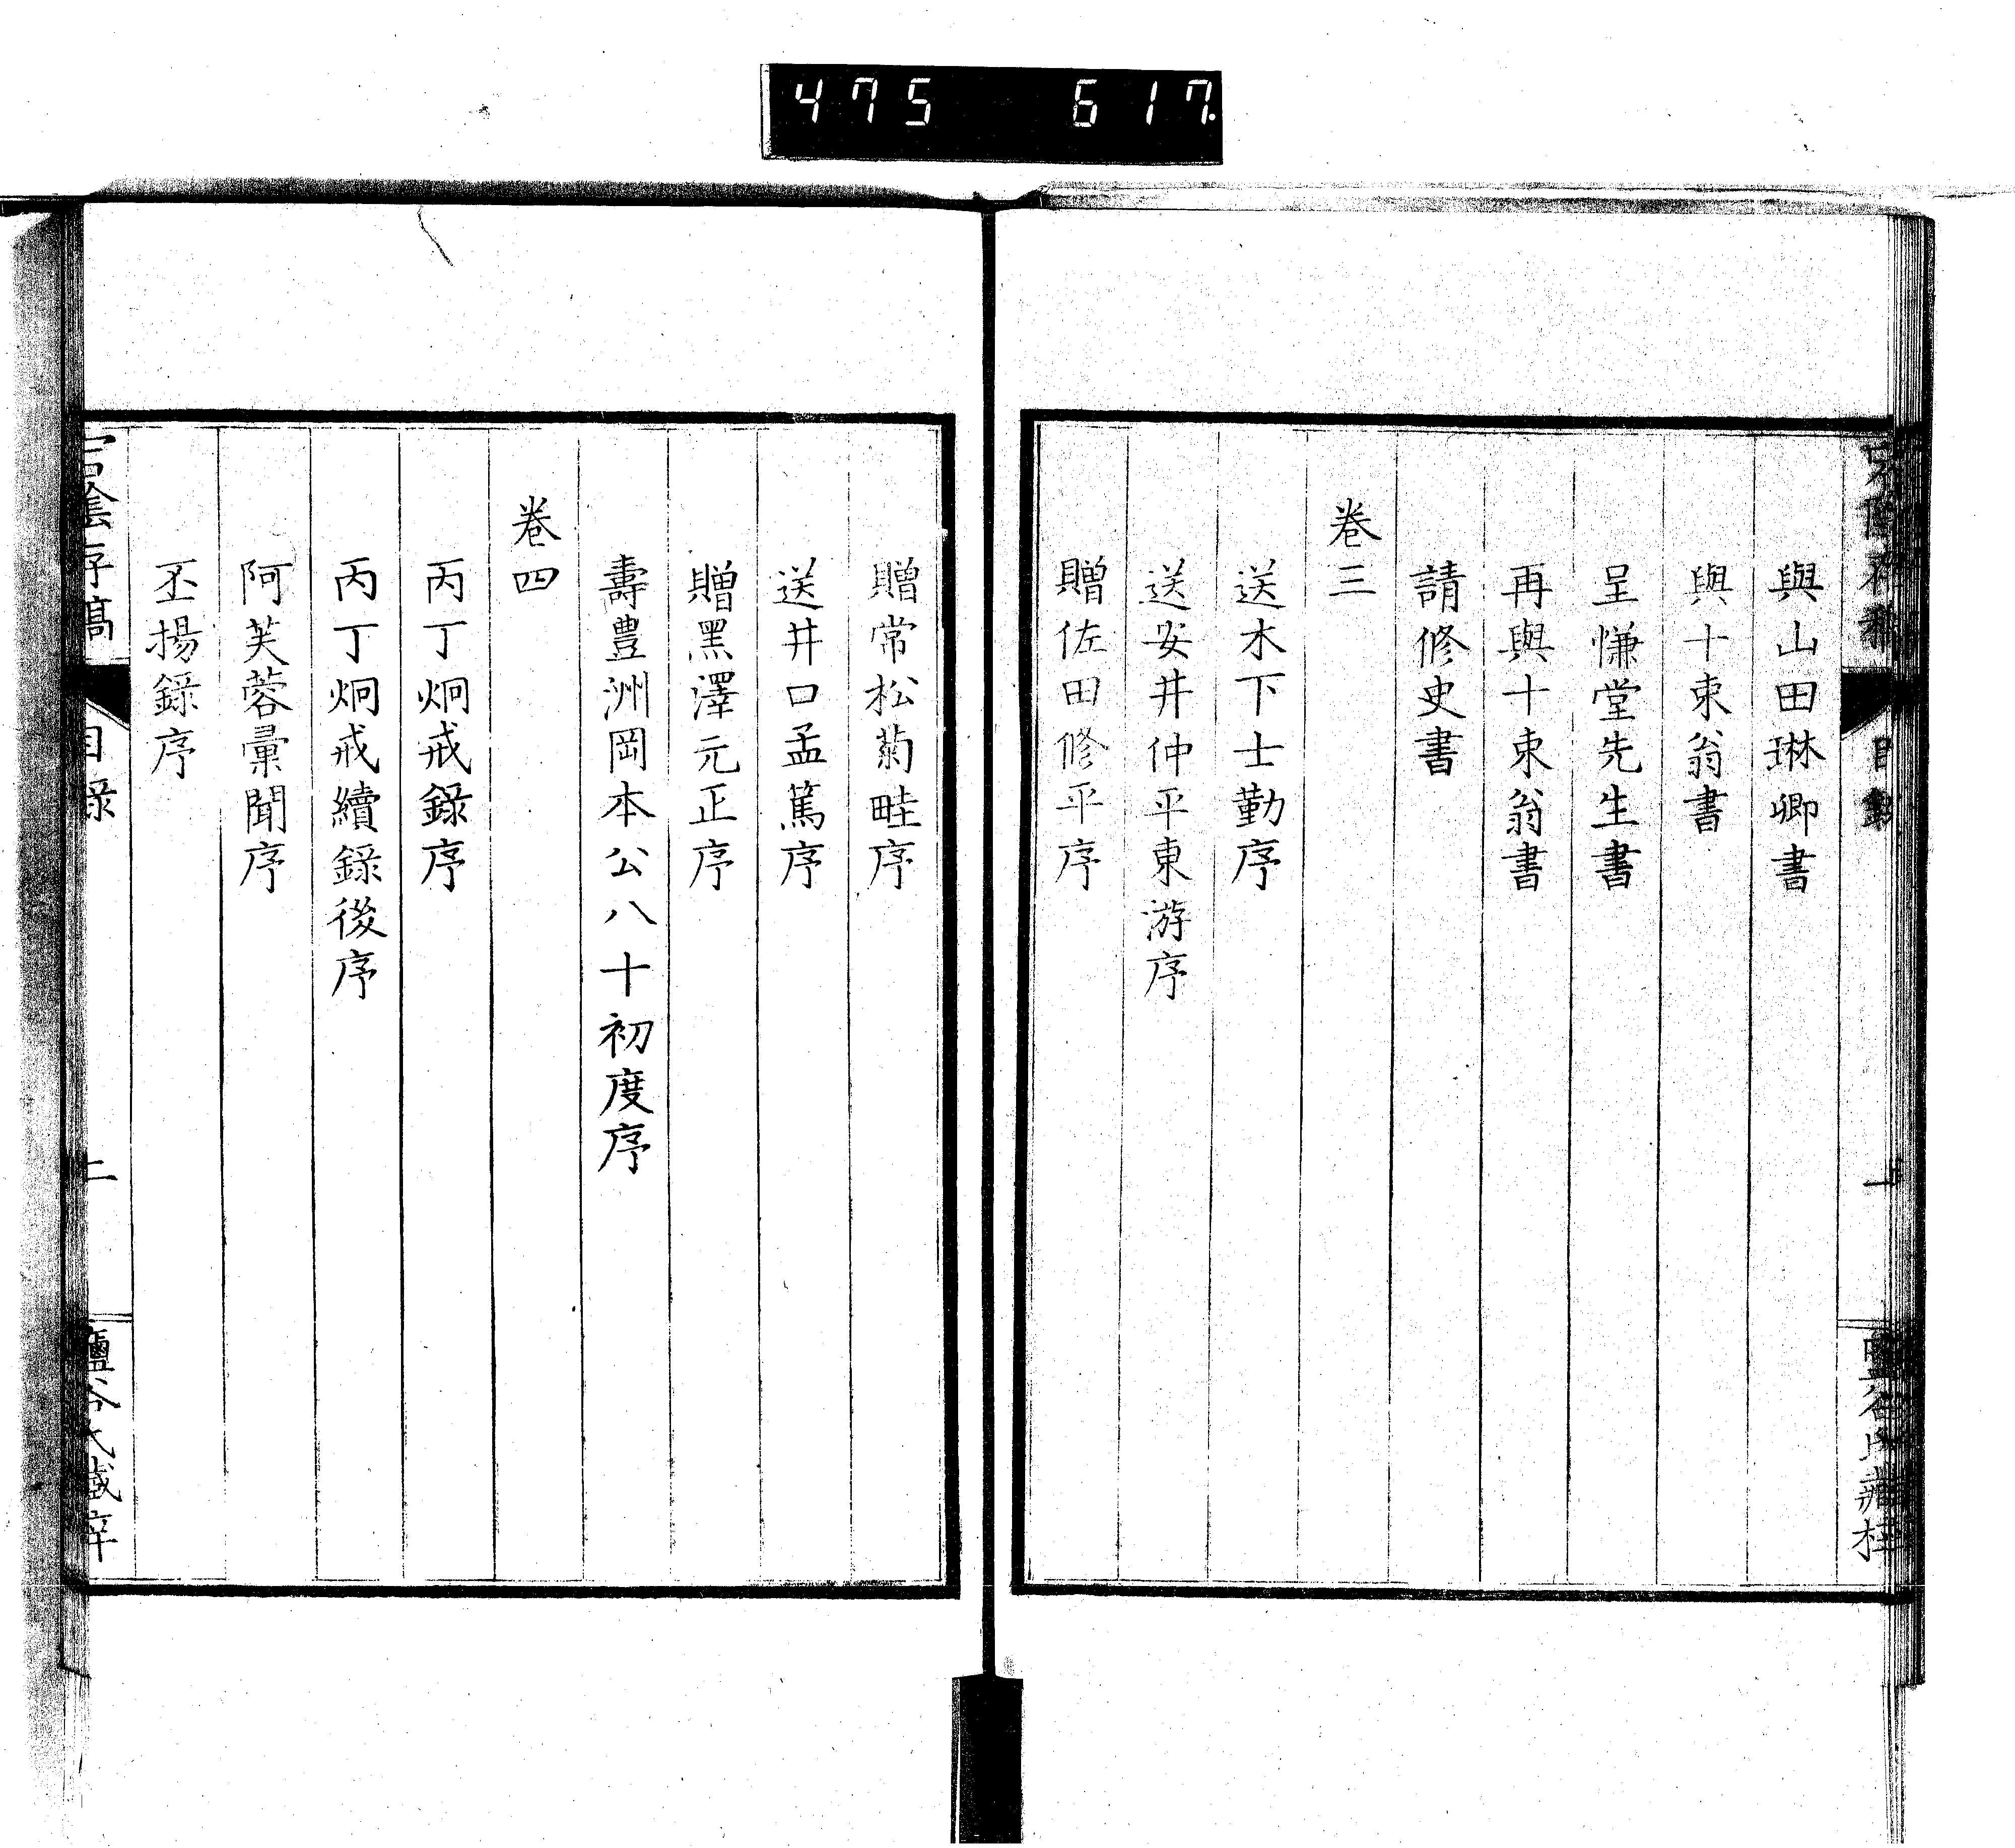 475 617.
與山田琳卿書
與十束翁書
呈慊堂先生書
再與十束翁書
請修史書
卷三
送木下士勤序
送安井仲平東游序
贈佐田修平序
贈常松菊畦序
送井口孟篤序
贈黑澤元正序
壽豊洲岡本公八十初度序
卷四
丙丁炯戒錄序
丙丁炯戒續錄後序
阿芙蓉彙聞序
丕揚錄序
目錄
二